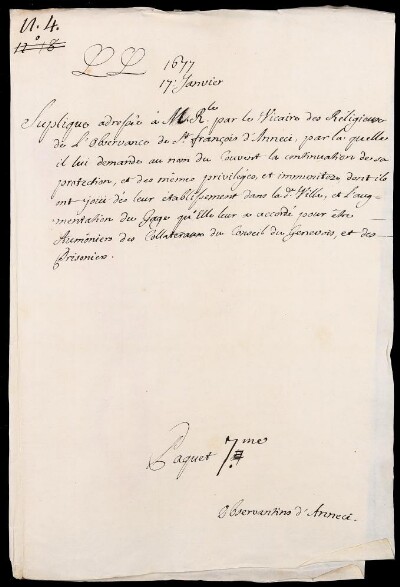 N. 4.
LL 1677
17e Janvier
Suplique adressée à M Rle par le Vicaire des Réligieux
de L'Observance de St. françois d'Anneci, par la quelle
il lui demande au nom du Couvent la continuation de sa
protection, et des mêmes priviléges, et immunitéz dont ils
ont joüi dès leur établissement dans la de. Ville, et L'aug-
mentation du Gage qu'Elle leur a accordé pour être
Aumôniers des Collateraux du Conseil du Genevois, et des
Prisoniers.
Paquet 7me
Observantins d'Anneci.